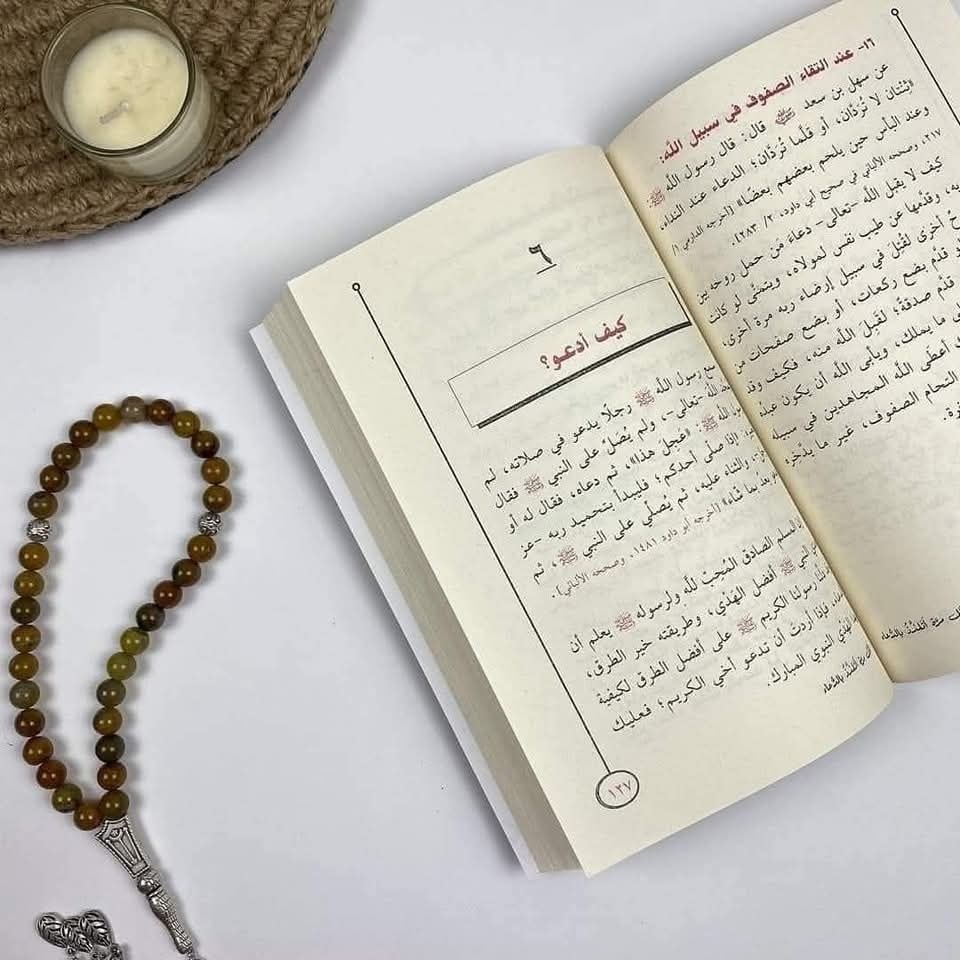 ١٦- عند التقاء الصفوف في سبيل الله:
عن سهل بن سعد ﵁ قال: قال رسول الله ﷺ:
«ثنتان لا تُردَّان، أو قلَّما تُردَّان؛ الدعاء عند النداء،
وعند البأس حين يلحم بعضهم بعضًا» (أخرجه الدارمي ١/
٢١٧، وصححه الألباني في صحيح أبي داود، ٣/ ٢٨٣).
كيف لا يقبل الله -تعالى- دعاء مَن حمل روحه بين
وقدَّمها عن طيب نفس لمولاه، ويتمنَّى لو كانت
أخرى لقُتِلَ في سبيل إرضاء ربه مرة أخرى،
قدَّم بضع ركعات، أو بضع صفحات من
قدَّم صدقة؛ لقَبِلَ الله منه، فكيف وقد
ما يملك، ويأبى الله أن يكون عبدُه
أعطى الله المجاهدين في سبيله
التحام الصفوف، غير ما يدَّخِره
٦
كيف أدعو؟
سمع رسول الله ﷺ رجلًا يدعو في صلاته، لم
الله -تعالى-، ولم يُصَلِّ على النبي ﷺ فقال
رسول الله ﷺ: «عجِلَ هذا»، ثم دعاه، فقال له أو
إذا صلى أحدكم؛ فليبدأ بتحميد ربه -عز
والثناء عليه، ثم يُصلِّي على النبي ﷺ، ثم
بعد بما شاء» (أخرجه أبو داود ١٤٨١، وصححه الألباني).
المسلم الصادق المُحِبَّ لله ولرسوله ﷺ يعلم أن
النبي ﷺ أفضل الهَدْي، وطريقته خير الطرق،
رسولنا الكريم ﷺ على أفضل الطرق لكيفية
فإذا أردتَ أن تدعو أخي الكريم؛ فعليك
النبوي المبارك.
١٢٧